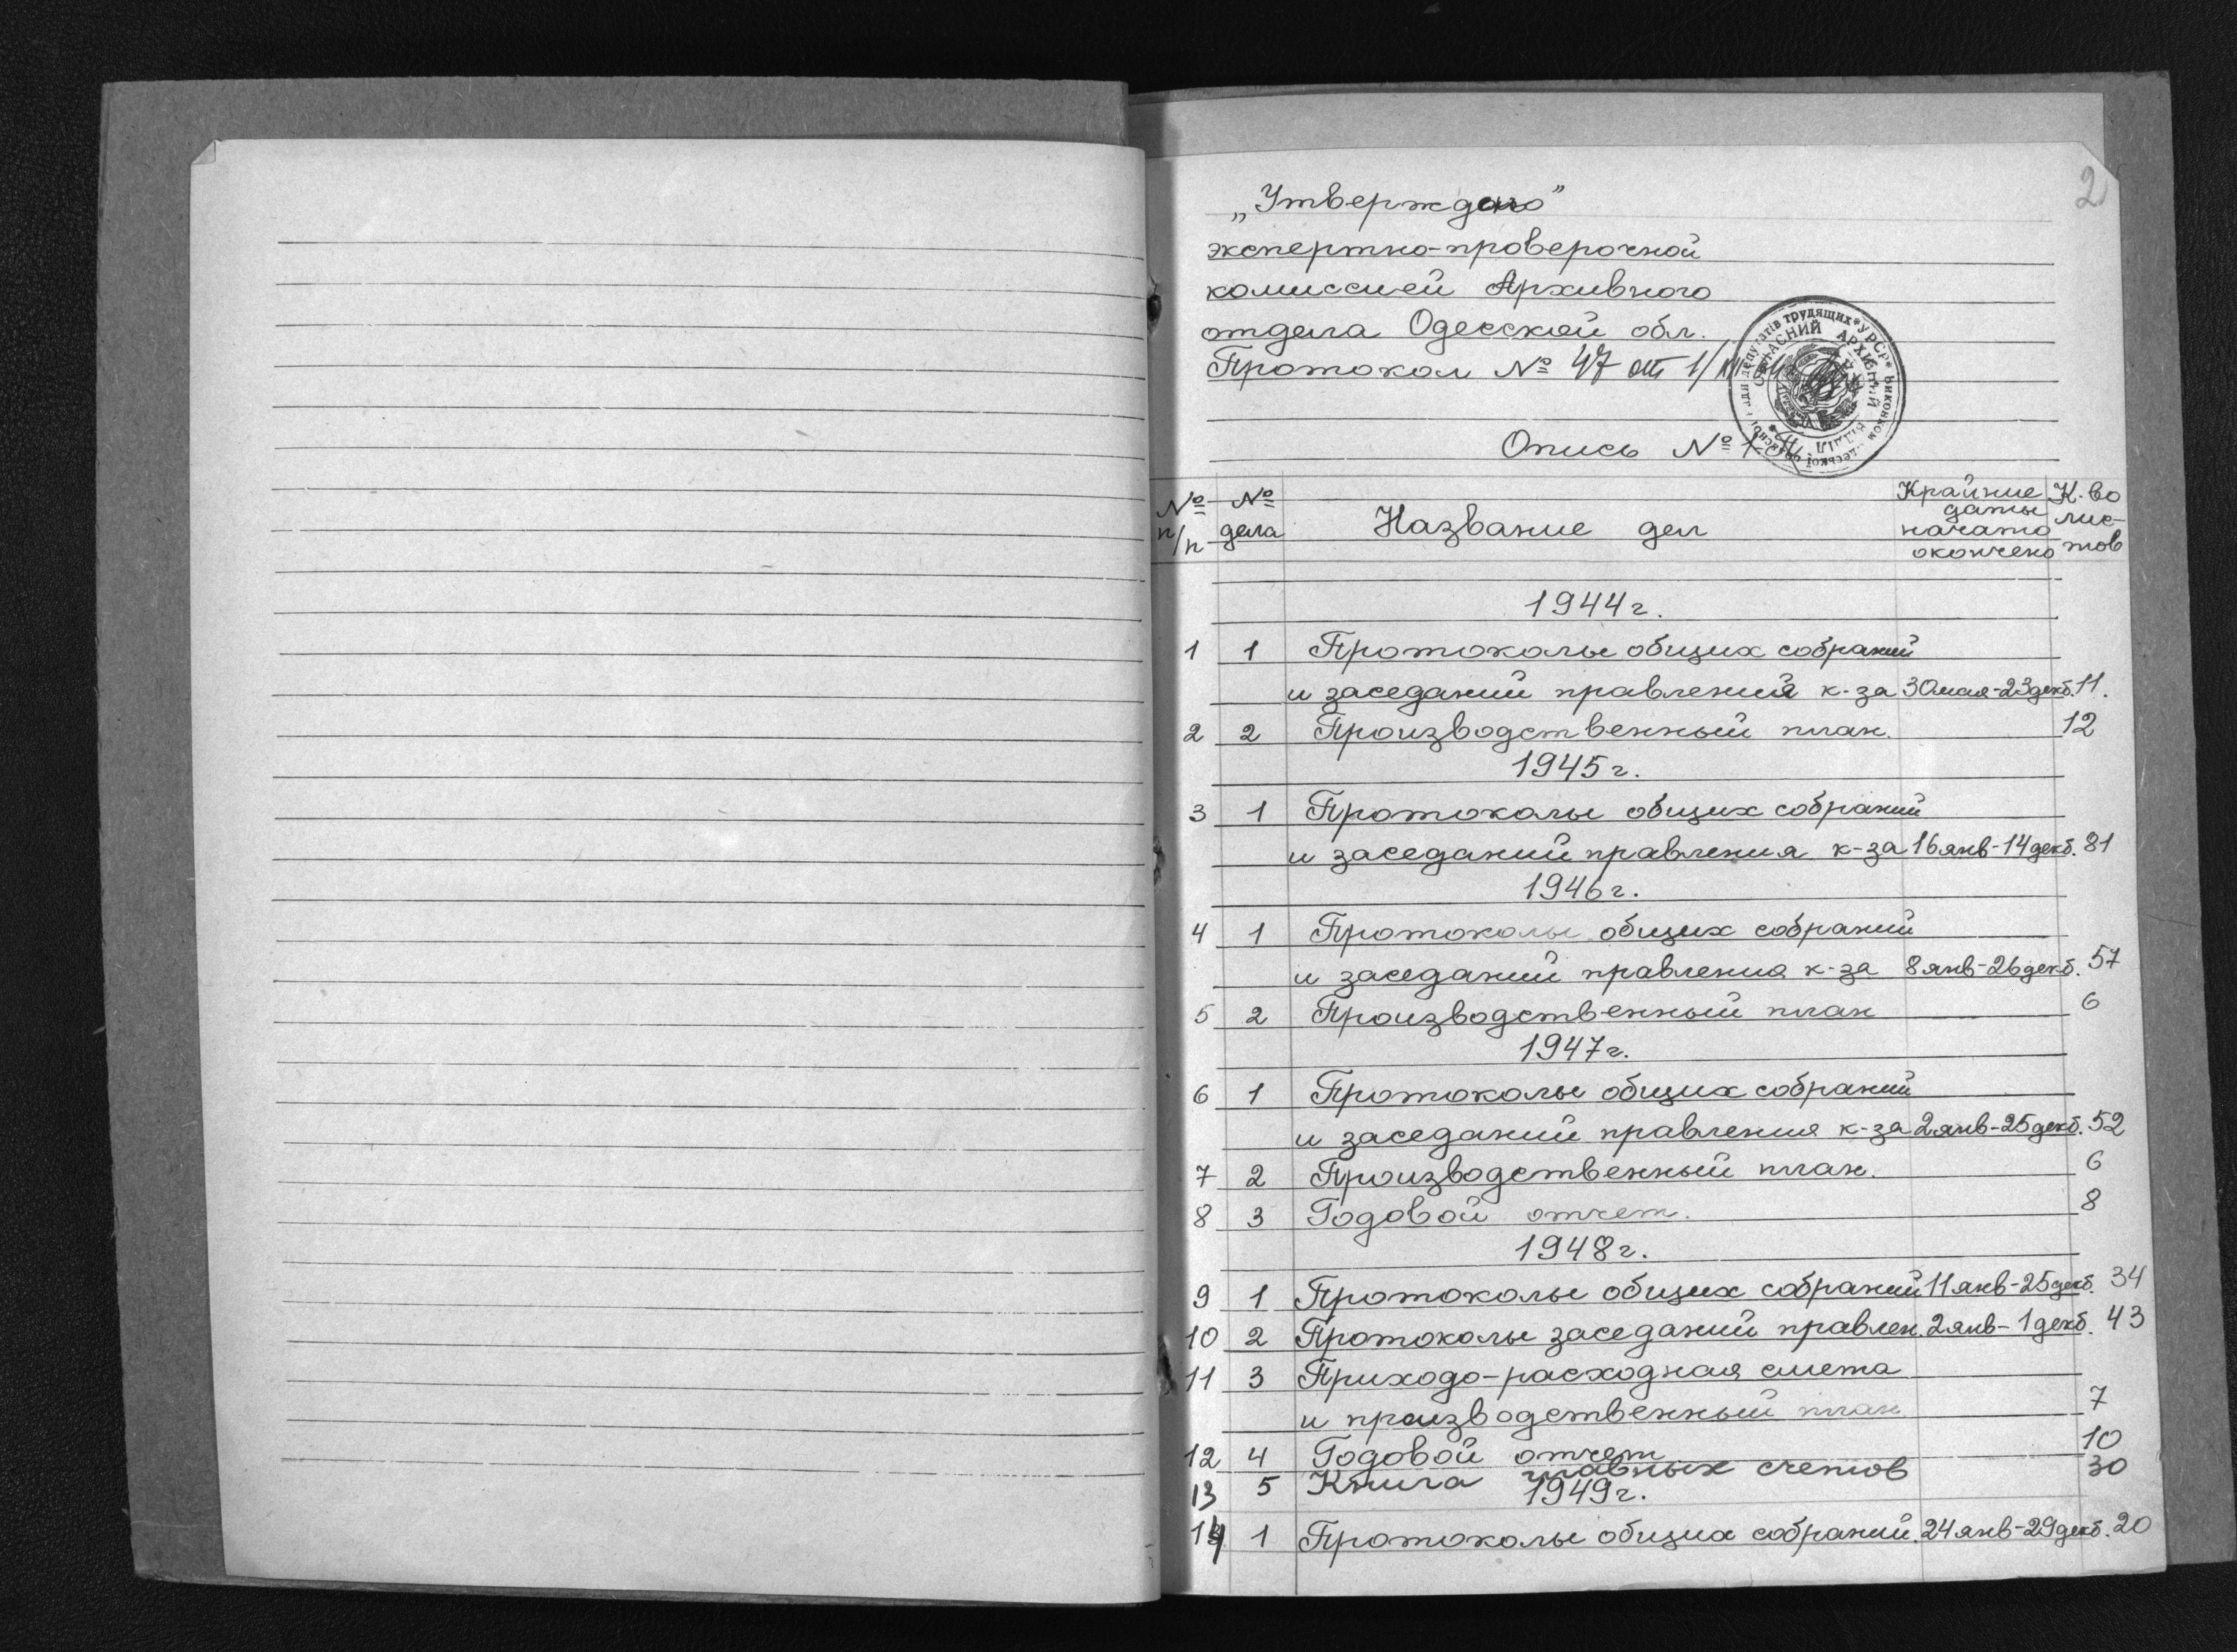 2
„Утверждено"
экспертно-проверочной
комиссией Архивного
отдела Одесской обл.
Протокол № 47 от 1/
ОБЛАСНИЙ АРХІВНИЙ ВІДДІЛ
Опись № 1
№ п/п № дела Название дел Крайние даты начато окончено К-во листов
1944 г.
1 1 Протоколы общих собраний
и заседаний правлений к-за 30 мая-23 декб. 11.
2 2 Производственный план. 12
1945 г.
3 1 Протоколы общих собраний
и заседаний правления к-за 16 янв-14 декб. 81
1946 г.
4 1 Протоколы общих собраний
и заседаний правления к-за 8 янв-26 декб. 57
5 2 Производственный план 6
1947 г.
6 1 Протоколы общих собраний
и заседаний правления к-за 2 янв-25 декб. 52
7 2 Производственный план. 6
8 3 Годовой отчет. 8
1948 г.
9 1 Протоколы общих собраний 11 янв-25 декб. 34
10 2 Протоколы заседаний правлен. 2 янв-1 декб. 43
11 3 Приходо-расходная смета
и производственный план 7
12 4 Годовой отчет 10
13 5 Книга главных счетов 30
1949 г.
14 1 Протоколы общих собраний. 24 янв-29 декб. 20